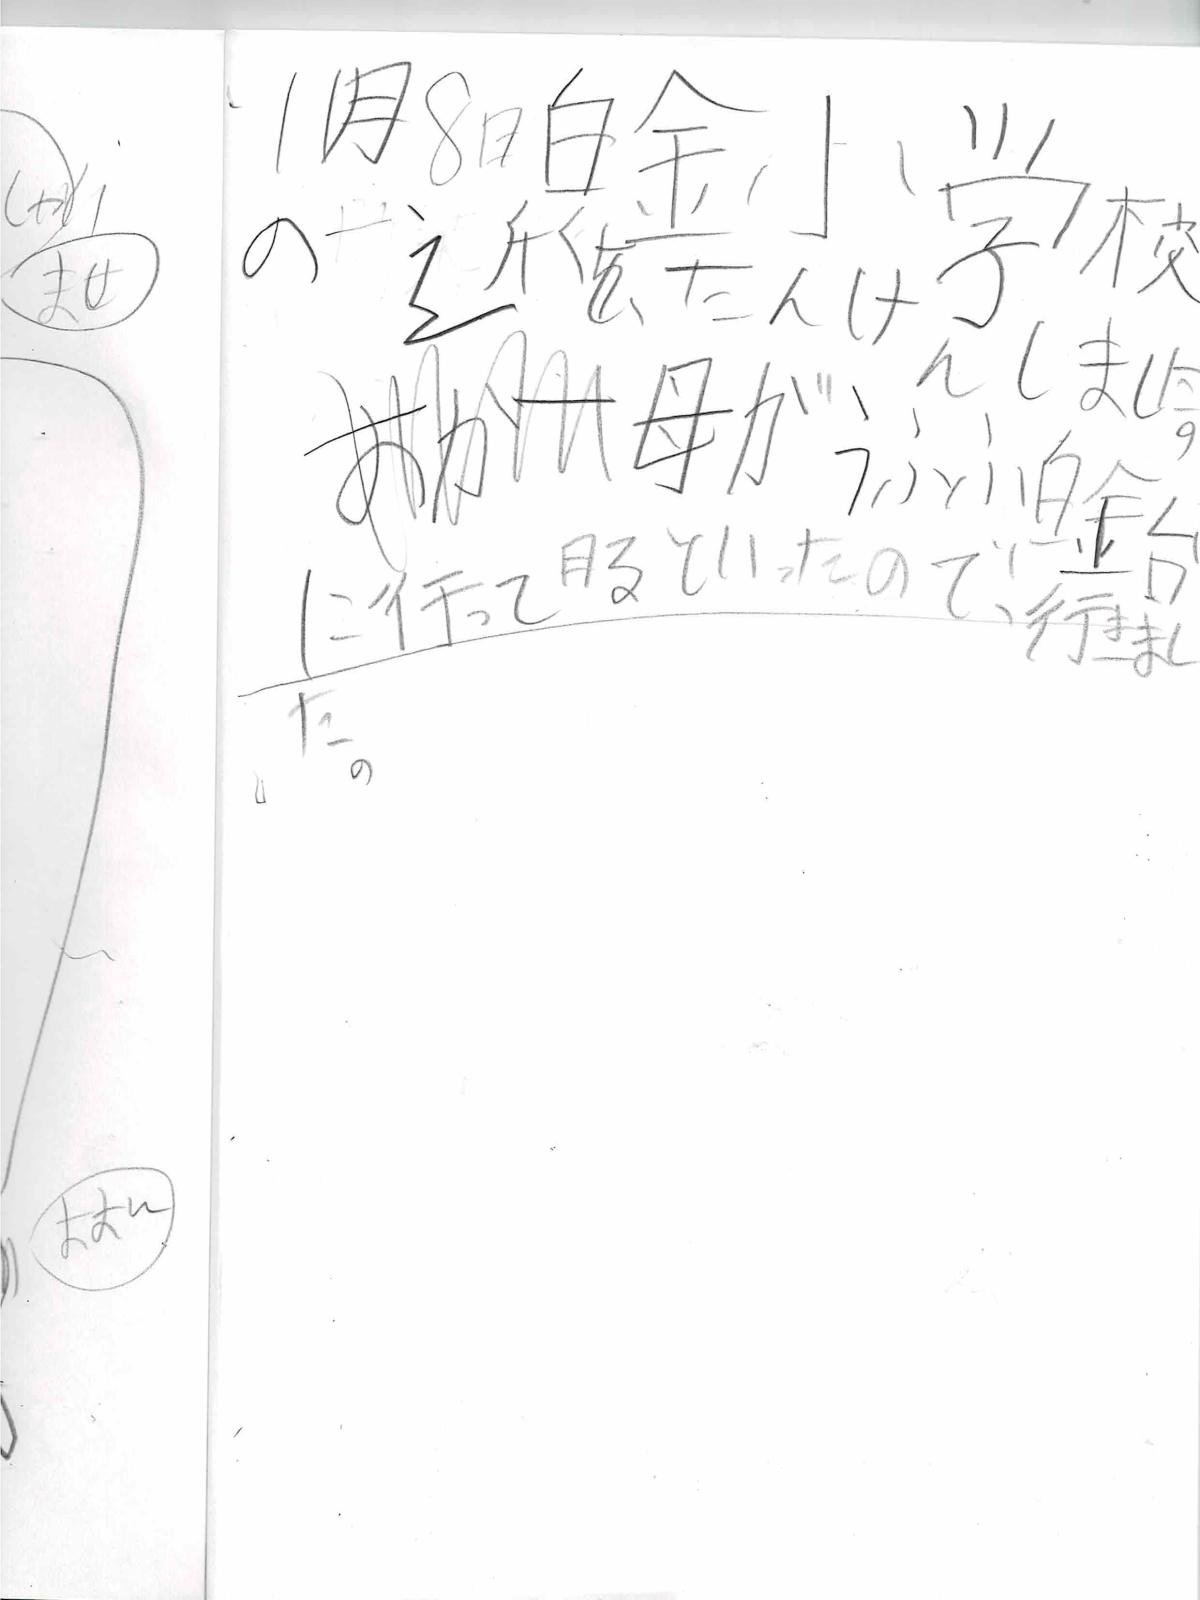 1月8日白金小学校
の近くを、たんけんしました。
母が、
白金台
に行って見るといったので、行きまし
た。
ませ